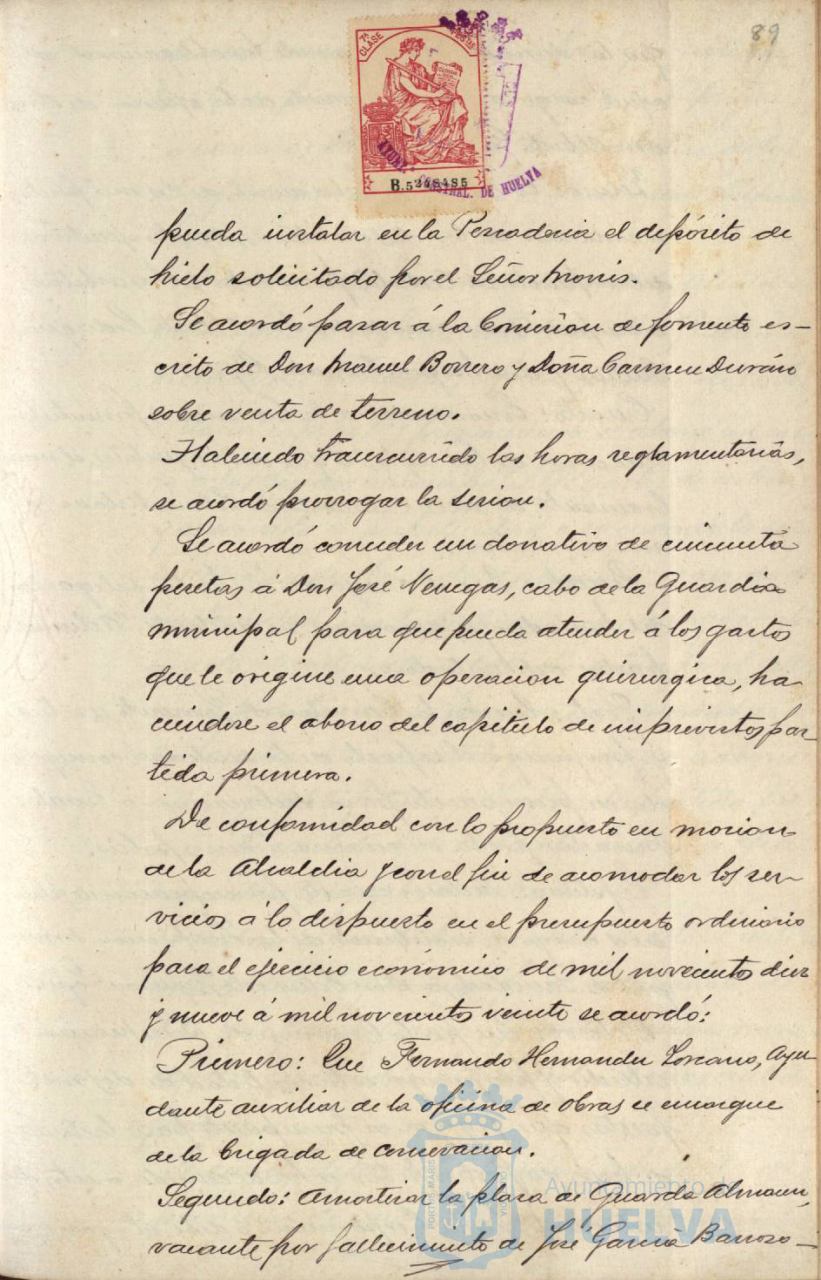 89
7ª CLASE
B.5248485
AYUNT. CONSTNAL. DE HUELVA
pueda instalar en la Pescaderia el depósito de
hielo solicitado por el Señor Morris.
Se acordó pasar á la Comision de fomento es-
crito de Don Manuel Borrero y Doña Carmen Durán
sobre venta de terreno.
Habiendo trascurrido las horas reglamentarias,
se acordó prorrogar la sesion.
Se acordó conceder un donativo de cincuenta
pesetas á Don José Venegas, cabo de la Guardia
municipal para que pueda atender á los gastos
que le origine una operacion quirurgica, ha
ciendose el abono del capitulo de imprevistos par-
tida primera.
De conformidad con lo propuesto en mocion
de la Alcaldia y con el fin de acomodar los ser-
vicios á lo dispuesto en el presupuesto ordinario
para el ejercicio económico de mil novecientos diez
y nueve á mil novecientos veinte se acordó:
Primero: Que Fernando Hernandez Lozcano, Ayu
dante auxiliar de la oficina de obras se encargue
de la brigada de conservacion.
Segundo: Amortizar la plaza de Guarda Almacen,
vacante por fallecimiento de José García Barroso-
Ayuntamiento de
HUELVA